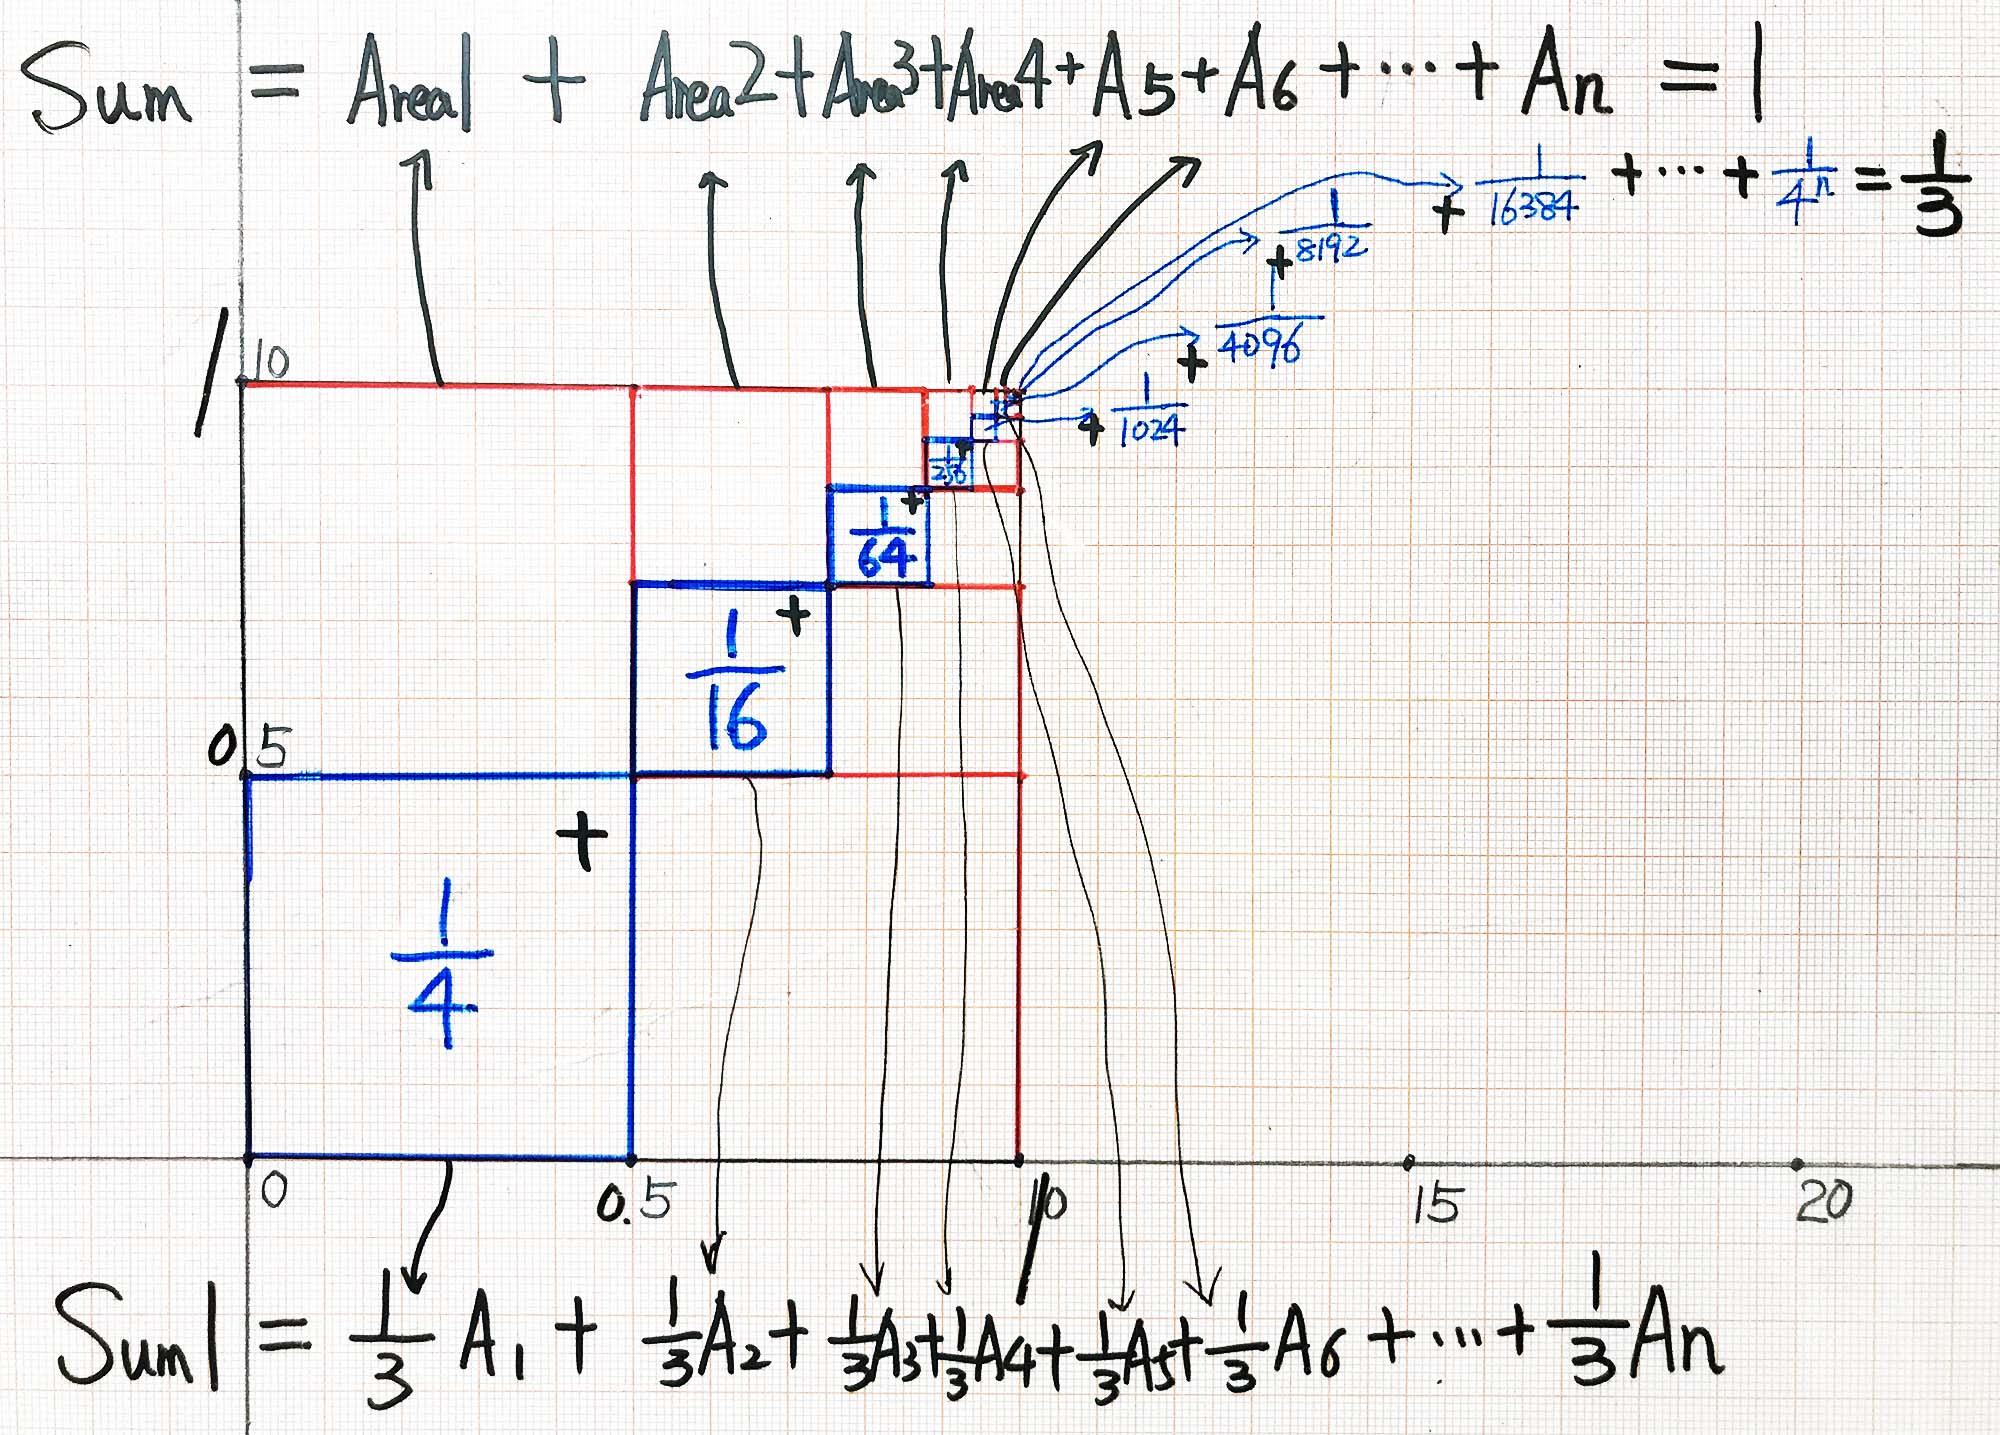 Sum = Area1 + Area2 + Area3 + Area4 + A5 + A6 + ... + An = 1
+ 1/16384 + ... + 1/4^n = 1/3
+ 1/8192
+ 1/4096
+ 1/1024
1 10
1/256 +
1/64 +
1/16 +
0 5
1/4 +
0 0.5 1 10 15 20
Sum1 = 1/3 A1 + 1/3 A2 + 1/3 A3 + 1/3 A4 + 1/3 A5 + 1/3 A6 + ... + 1/3 An